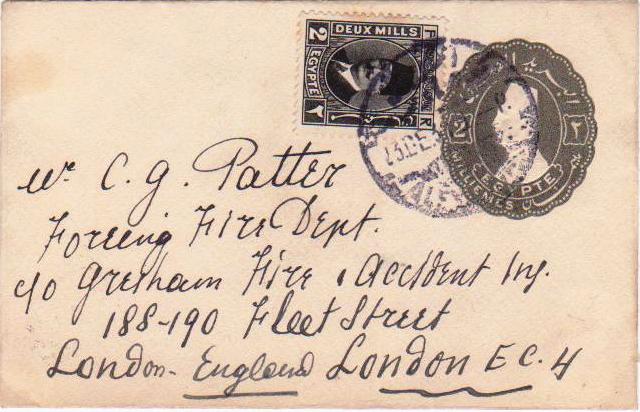 DEUX MILLS
2
EGYPTE
٢
R
23 DE
ALE
2
٢
EGYPTE
MILLIEMES
Mr C. G. Patter
Foreing Fire Dept.
c/o Gresham Fire & Accident Ins.
188-190 Fleet Street
London - England London E C. 4